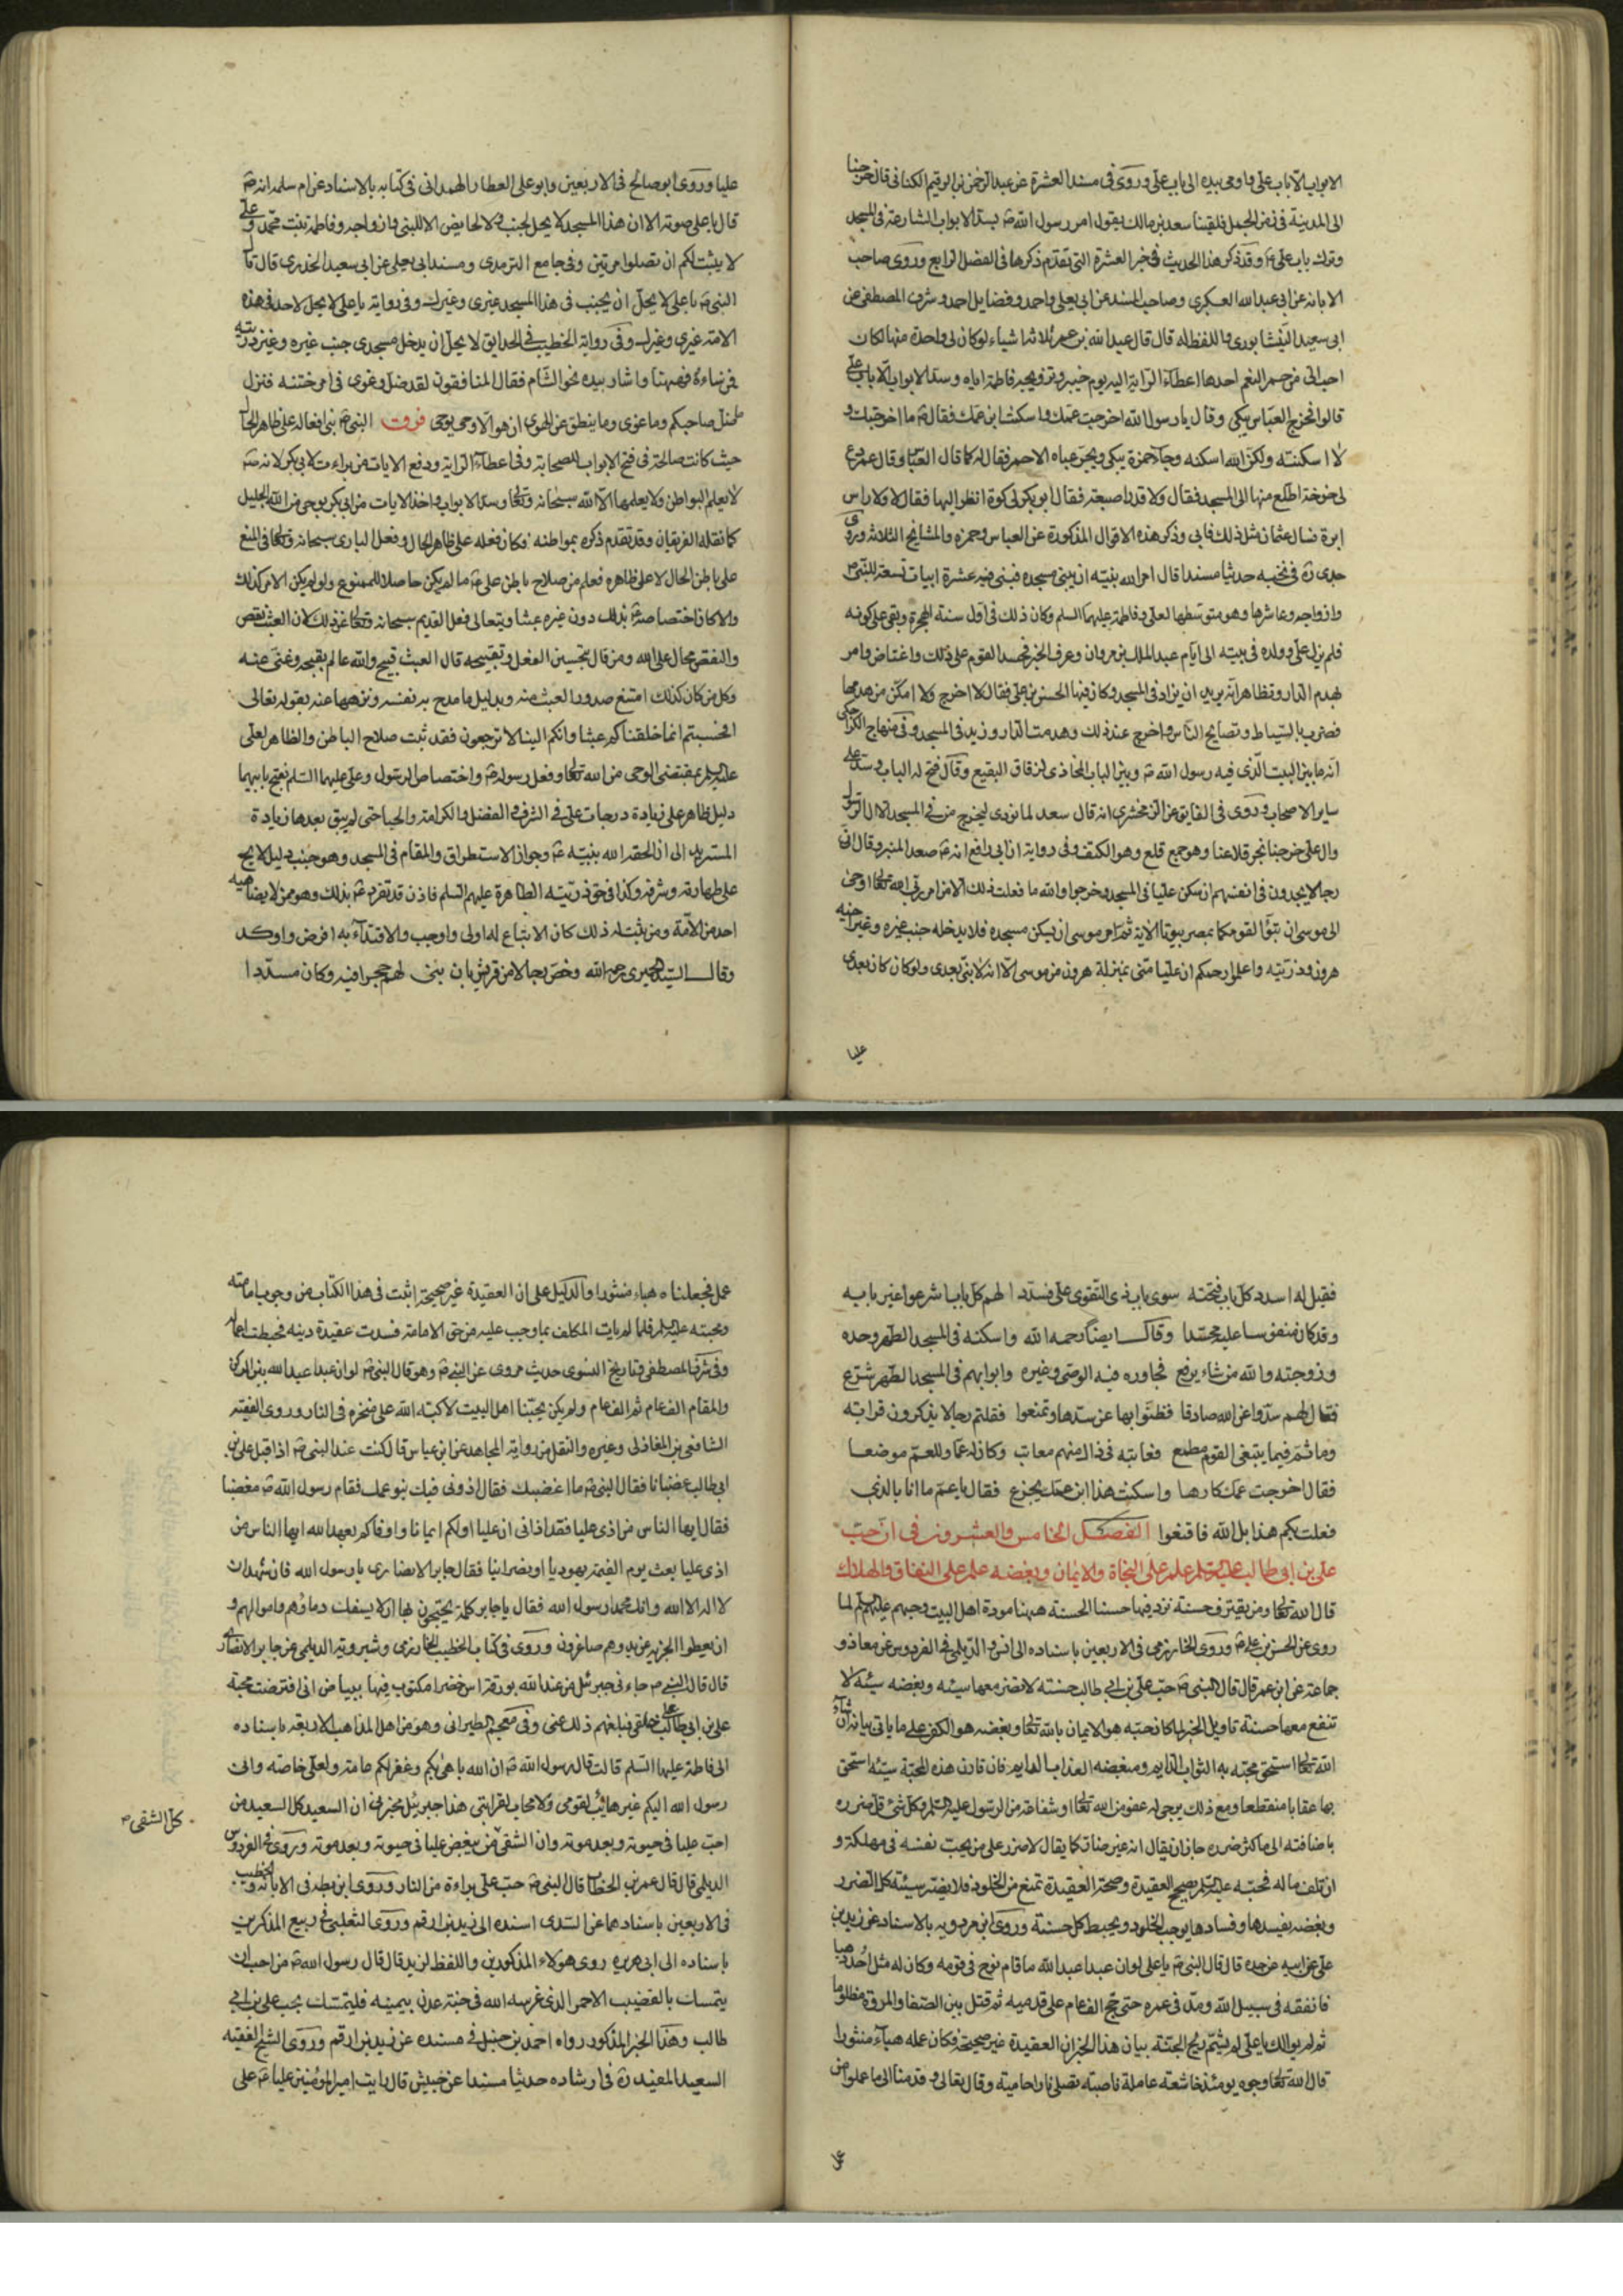 الابواب الا باب علي واومى بيده الى باب علي وروى في مسند العشرة عن عبد الرحمن بن الرقيم الكناني قال خرجنا
الى المدينة في زمن الجمل فلقينا سعد بن مالك يقول امر رسول الله ص بسد الابواب الشارعة في المسجد
وترك باب علي ع وقد ذكر هذا الحديث في خبر العشرة التي تقدم ذكرها في الفصل الرابع وروى صاحب
الابانه عن ابي عبد الله العكبرى وصاحب المسند عن ابي يعلى واحمد وفضايل احمد وشرف المصطفى عن
ابي سعيد النيشابورى واللفظ له قال قال عبد الله بن عمر ثلاثة اشياء لو كان لي واحدة منها لكان
احب الى من حمر النعم احدها اعطاء الراية اليه يوم خيبر وتزويجه فاطمة اياه وسد الابواب الا باب علي
قالوا فخرج العباس يبكي وقال يا رسول الله اخرجت عمك واسكنت ابن عمك فقال ص ما اخرجتك و
لا اسكنته ولكن الله اسكنه وجاء حمزة يبكي ويجر عباه الاحمر فقال له كما قال العباس وقال عمر دع
لي خوخة اطلع منها الى المسجد فقال ولا قدر اصبعة فقال ابو بكر لي كوة انظر اليها فقال لا ولا راس
ابرة فسال عثمان مثل ذلك فابى وذكر هذه الاقوال المذكورة عن العباس وحمزه والمشايخ الثلاثة وروى
جدى ره في نخبه حديثا مسندا قال امر الله نبيه ان يبنى مسجده فبنى فيه عشرة ابيات تسعة للنبي ص
وازواجه وعاشرها وهو متوسطها لعلي وفاطمة عليهما السلم وكان ذلك في اول سنة الهجرة وبقى على كونه
فلم يزل علي وولده في بيته الى ايام عبد الملك بن مروان وعرف الخبر فحسد القوم على ذلك واغتاض وامر
بهدم الدار وتظاهر انه يريد ان يزاد في المسجد وكان فيها الحسن بن علي فقال لا اخرج ولا امكن من هدمها
فضرب بالسياط وتصايح الناس واخرج عند ذلك وهدمت الدار وزيد في المسجد وفي منهاج الكراجكى
انه ما بين البيت الذى فيه رسول الله ص وبين الباب المحاذى لزقاق البقيع وقال فتح له الباب وسد على
ساير الاصحاب وروى في الفايق عن الزمخشرى انه قال سعد لما نودى ليخرج من في المسجد الا ال الرسول
وال علي خرجنا نجر قلاعنا وهو جمع قلع وهو الكنف وفي رواية ان ابي رافع انه ص صعد المنبر وقال ان
رجالا يجدون في انفسهم ان سكن عليا في المسجد وخرجوا والله ما فعلت ذلك الا من امر ربي الله تعالى اوحى
الى موسى ان تبوا لقومكما بمصر بيوتا الاية ثم امر موسى ان يسكن مسجده فلا يدخله جنب غيره وغير اخيه
هرون وذريته واعلموا رحمكم ان عليا منى بمنزلة هرون من موسى الا انه لا نبي بعدى ولو كان كان بعدى
عليا
عليا وروى ابو صالح في الاربعين وابو على العطار الهمداني في كتابه بالاسناد عن ام سلمه انه ص
قال باعلى صوته الا ان هذا المسجد لا يحل لجنب ولا لحايض الا للنبي وازواجه وفاطمة بنت محمد وعلي
لا يبثت لكم ان تضلوا مرتين وفي جامع الترمدى ومسند ابي يعلى عن ابي سعيد الخدرى قال قال
النبي ص يا على لا يحل ان يجنب في هذا المسجد غيرى وغيرك وفي رواية يا على لا يحل لاحد في هذه
الامة غيري وغيرك وفي رواية الخطيب في الحدايق لا يحل ان يدخل مسجدى جنب غيره وغير ذريته
فمن شاء فههنا واشار بيده نحو الشام فقال المنافقون لقد ضل وغوى في امر ختنه فنزل
ما ضل صاحبكم وما غوى وما ينطق عن الهوى ان هو الا وحى يوحى فرق النبي ص بنى افعاله على ظاهر الحال
حيث كانت صالحة في فتح الابواب للصحابة وفي اعطاء الراية ودفع الايات من براءت لابي بكر لانه ص
لا يعلم البواطن ولا يعلمها الا الله سبحانه وتعالى وسد الابواب واخذ الايات من ابي بكر بوحى من الله الجليل
كما نقله الفريقان وقد تقدم ذكره بمواطنه فكان فعله على ظاهر الحال وفعل البارى سبحانه وتعالى في المنع
على باطن الحال لا على ظاهره فعلم من صلاح باطن علي ع ما لم يكن حاصلا للممنوع ولو لم يكن الامر كذلك
والا كان اختصاصه ع بذلك دون غيره عبثا ويتعالى فعل القديم سبحانه وتعالى عن ذلك لان العبث نقص
والنقص محال على الله ومن قال بتحسين العقل وتقبيحه قال العبث قبيح والله عالم بقبحه وغنى عنه
وكل من كان كذلك امتنع صدور العبث منه وبدليل ما مدح به نفسه ونزهها عنه بقوله تعالى
افحسبتم انما خلقناكم عبثا وانكم الينا لا ترجعون فقد ثبت صلاح الباطن والظاهر لعلي
عليه السلم بمقتضى الوحى من الله تعالى وفعل رسوله ص واختصاص الرسول وعلى عليهما السلم بفتح بابيهما
دليل ظاهر على زيادة درجات علي في الشرف والفضل والكرامة والحيا حتى لم يبق بعدها زيادة
المستزيد الى ان الحقه الله بنبيه ص وجواز الاستطراق والمقام في المسجد وهو جنب دليل لايح
على طهارته وشرفه وكذا في حق ذريته الطاهرة عليهم السلم فاذن قد تفرد ع بذلك وهو ممن لا يضاهيه
احد من الامة ومن ثبت له ذلك كان الاتباع له اولى واوجب والاقتداء به افرض واوكد
وقال السيد الحميرى رحمه الله وخص رجالا من قريش بان بنى لهم حجرا فيه وكان مسددا
فقيل له اسدد كل باب فتحته سوى باب ذى التقوى علي فسددا لهم كل بابا شرعوا غير بابه
وقد كان منفوسا عليه محسدا وقال ايضا رحمه الله واسكنه في المسجد الطهر وحده
وزوجته والله من شاء يرفع فجاوره فيه الوصى وغيره وابوابهم في المسجد الطهر شرع
فقال لهم سدوا عن الله صادقا فظنوا بها عن سدها وتمنعوا فقلتم رجالا يذكرون قرابة
وما ثم فيما يبتغى القوم مطمع فعاتبه في ذاك منهم معاتب وكان له عما وللعم موضعا
فقال اخرجت عمك كارها واسكنت هذا ابن عمك يجزع فقال يا عم ما انا بالذي
فعلت بكم هذا بل الله فاقنعوا الفصل الخامس والعشرون في ان حب
علي بن ابي طالب عليه السلم علم على النجاة والايمان وبغضه علم على النفاق والهلاك
قال الله تعالى ومن يقترف حسنة نزد فيها حسنا الحسنة ههنا مودة اهل البيت وحبهم عليهم السلم لما
روى عن الحسن بن علي ع وروى الخارزمى في الاربعين باسناده الى انس والديلمي في الفردوس عن معاذ و
جماعة عن ابن عمر قال قال النبي ص حب علي بن ابي طالب حسنة لا تضر معها سيئه وبغضه سيئه لا
تنفع معها حسنة تاويل الخبر لما كان حبه هو الايمان بالله تعالى وبغضه هو الكفر على ما ياتى بيانه ان شاء
الله تعالى استحق محبه به الثواب الدايم ومبغضه العذاب الدايم فان قارن هذه المحبة سيئه استحق
بها عقابا منقطعا ومع ذلك يرجى له عفو من الله تعالى او شفاعة من الرسول عليه السلم وكل شئ قل ضرره
باضافته الى ما كثر ضرره جاز ان يقال انه غير ضار كما يقال لا ضرر على من نجت نفسه في مهلكة و
ان تلف ماله فحبه عليه السلم يصحح العقيدة وصحة العقيدة تمنع من الخلود فلا يضر سيئه كل الضرر
وبغضه يفسدها وفسادها يوجب الخلود ويحبط كل حسنة وروى ابن مردويه بالاسناد عن زيد بن
علي عن ابيه عن جده قال قال النبي ص يا على لو ان عبدا عبد الله ما قام نوح في قومه وكان له مثل احد ذهبا
فانفقه في سبيل الله ومد في عمره حتى حج الف عام على قدميه ثم قتل بين الصفا والمروة مظلوما
ثم لم يوالك يا علي لم يشم ريح الجنة بيان هذا الخبر ان العقيدة غير صحيحة وكان عمله هباء منثورا
قال الله تعالى وجوه يومئذ خاشعة عاملة ناصبة تصلى نارا حامية وقال تعالى وقدمنا الى ما عملوا من
عمل
عمل فجعلناه هباء منثورا والدليل على ان العقيدة غير صحيحة ما اثبت في هذا الكتاب من وجوب امامته
ومحبته عليه السلم فلما لم يات المكلف بما وجب عليه من حق الامامة فسدت عقيدة دينه فحبطت اعماله
وفي شرف المصطفى وتاريخ النسوى حديث مروى عن النبي ص وهو قال النبي ص لو ان عبدا عبد الله بين الركن
والمقام الف عام ثم الف عام ولم يكن يحبنا اهل البيت لاكبه الله على منخره في النار وروى الفقيه
الشافعي بن المغازلى وغيره والنقل من رواية المجاهد عن ابن عباس قال كنت عند النبي ص اذا قبل علي بن
ابي طالب غضبانا فقال النبي ص ما اغضبك فقال اذونى فيك بنو عمك فقام رسول الله ص مغضبا
فقال ايها الناس من اذى عليا فقد اذانى ان عليا اولكم ايمانا واوفاكم بعهد الله ايها الناس من
اذى عليا بعث يوم القيمة يهوديا او نصرانيا فقال جابر الانصارى يا رسول الله فان شهد ان
لا اله الا الله وانك محمد رسول الله فقال يا جابر كلمة يحتجزون بها ان لا يسفك دماؤهم واموالهم و
ان يعطوا الجزية عن يد وهم صاغرون وروى في كتاب الخطيب الخارزمى وشيرويه الديلمي عن جابر الانصاري
قال قال النبي ص جاءني جبرئيل من عند الله بورقة اس خضرا مكتوب فيها ببياض انى افترضت محبة
علي بن ابي طالب على خلقي فبلغهم ذلك عنى وفي معجم الطبرانى وهو من اهل المذاهب الاربعة باسناده
الى فاطمة عليها السلم قالت قال رسول الله ص ان الله باهى بكم وغفر لكم عامة ولعلي خاصة وانى
رسول الله اليكم غير هايب لقومى ولا محاب لقرابتى هذا جبرئيل يخبرنى ان السعيد كل السعيد من
احب عليا في حيوته وبعد موته وان الشقي من يبغض عليا في حيوته وبعد موته وروى في الفردوس
كل الشقى ص
الديلمي قال قال عمر بن الخطاب قال النبي ص حب علي براءة من النار وروى ابن بطه في الابانه والخطيب
في الاربعين باسنادهما عن السدى اسنده الى زيد بن ارقم وروى الثعلبي في ربيع المذكرين
باسناده الى ابي هريره روى هؤلاء المذكورين واللفظ لزيد قال قال رسول الله ص من احب ان
يتمسك بالقضيب الاحمر الذى غرسه الله في جنة عدن بيمينه فليتمسك بحب علي بن ابي
طالب وهذا الخبر المذكور رواه احمد بن حنبل في مسنده عن زيد بن ارقم وروى الشيخ الفقيه
السعيد المفيد ره في ارشاده حديثا مسندا عن حبيش قال رايت امير المؤمنين عليا ع على